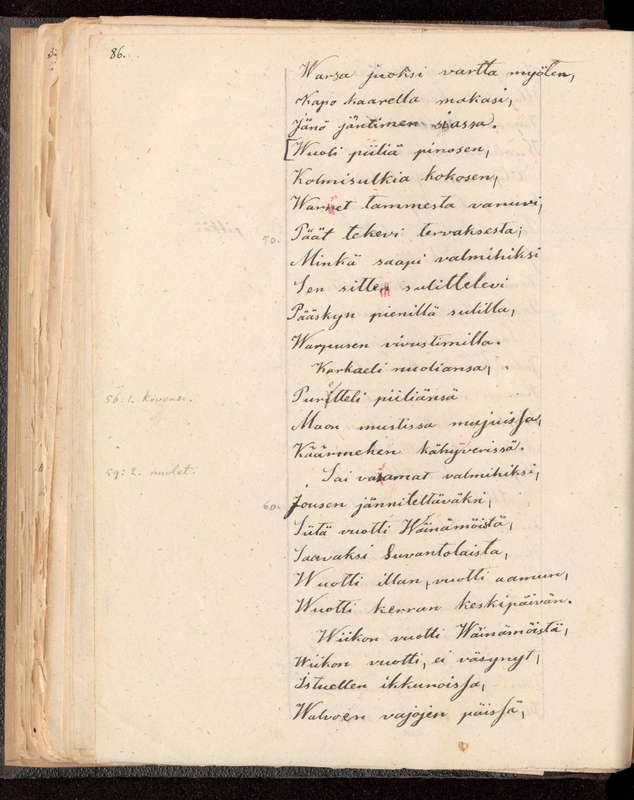 86.
Warsa juoksi vartta myöten,
Kapo kaarella makasi,
Jänö jäntimen siassa.
[Wuoli piiliä pinosen,
Kolmisulkia kokosen,
Warret tammesta vanuvi,
50. Päät tekevi tervaksesta;
Minkä saapi valmihiksi
Sen sitten sulittelevi
Pääskyn pienillä sulilla,
Warpusen vivustimilla.
Karkaeli nuoliansa,
Puretteli piiliänsä
56: 1. kovoasi.
Maon mustissa mujuissa,
Käärmehen kähyverissä.
Sai vasamat valmihiksi,
59: 2. nuolet.
60. Jousen jänniteltäväksi,
Siitä vuotti Wäinämöistä,
Saavaksi Suvantolaista,
Wuotti illan, vuotti aamun,
Wuotti kerran keskipäivän.
Wiikon vuotti Wäinämöistä,
Wiikon vuotti, ei väsynyt,
Istuellen ikkunoissa,
Walvoen vajojen päissä,